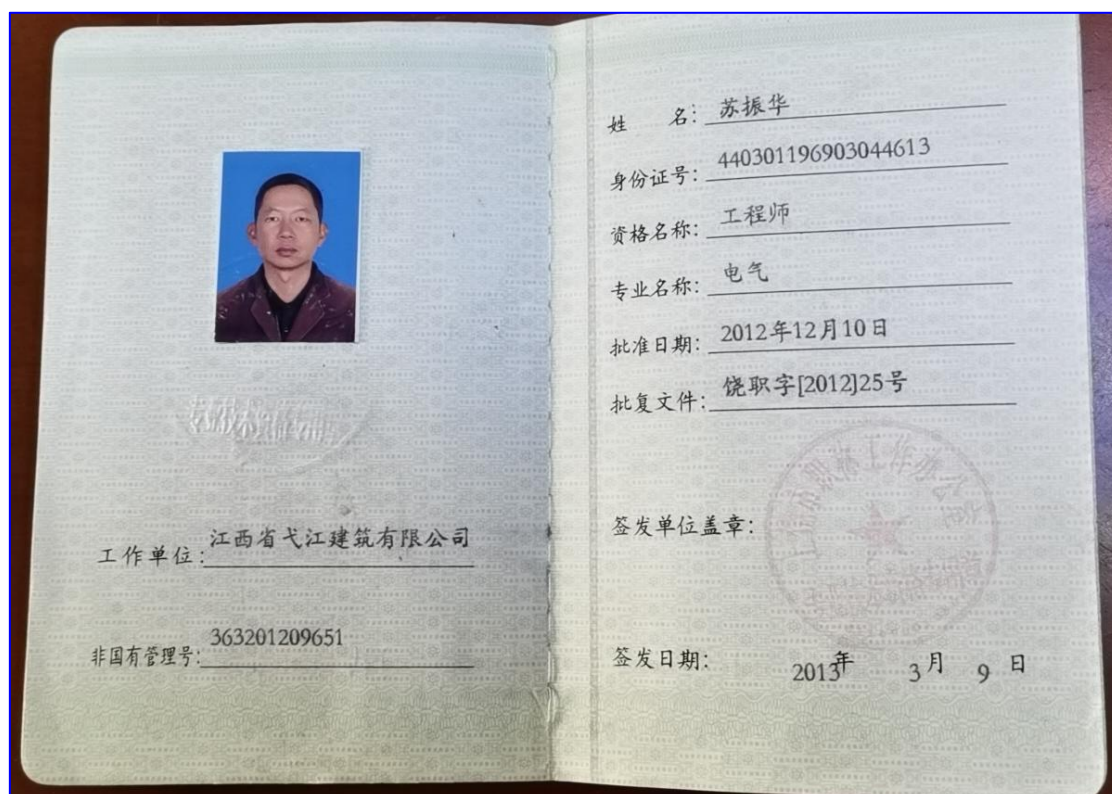 工作单位:江西省弋江建筑有限公司
非国有管理号:363201209651
姓 名:苏振华
身份证号:440301196903044613
资格名称:工程师
专业名称:电气
批准日期:2012年12月10日
批复文件:饶职字[2012]25号
签发单位盖章:
上饶市职称工作办公室
签发日期: 2013年 3月 9 日